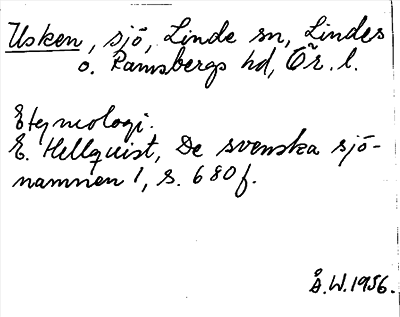 Usken, sjö, Linde sn, Lindes
o. Ramsbergs hd, Ör. l.
Etymologi.
E. Hellquist, De svenska sjö-
namnen 1, s. 680f.
Å.W. 1956.